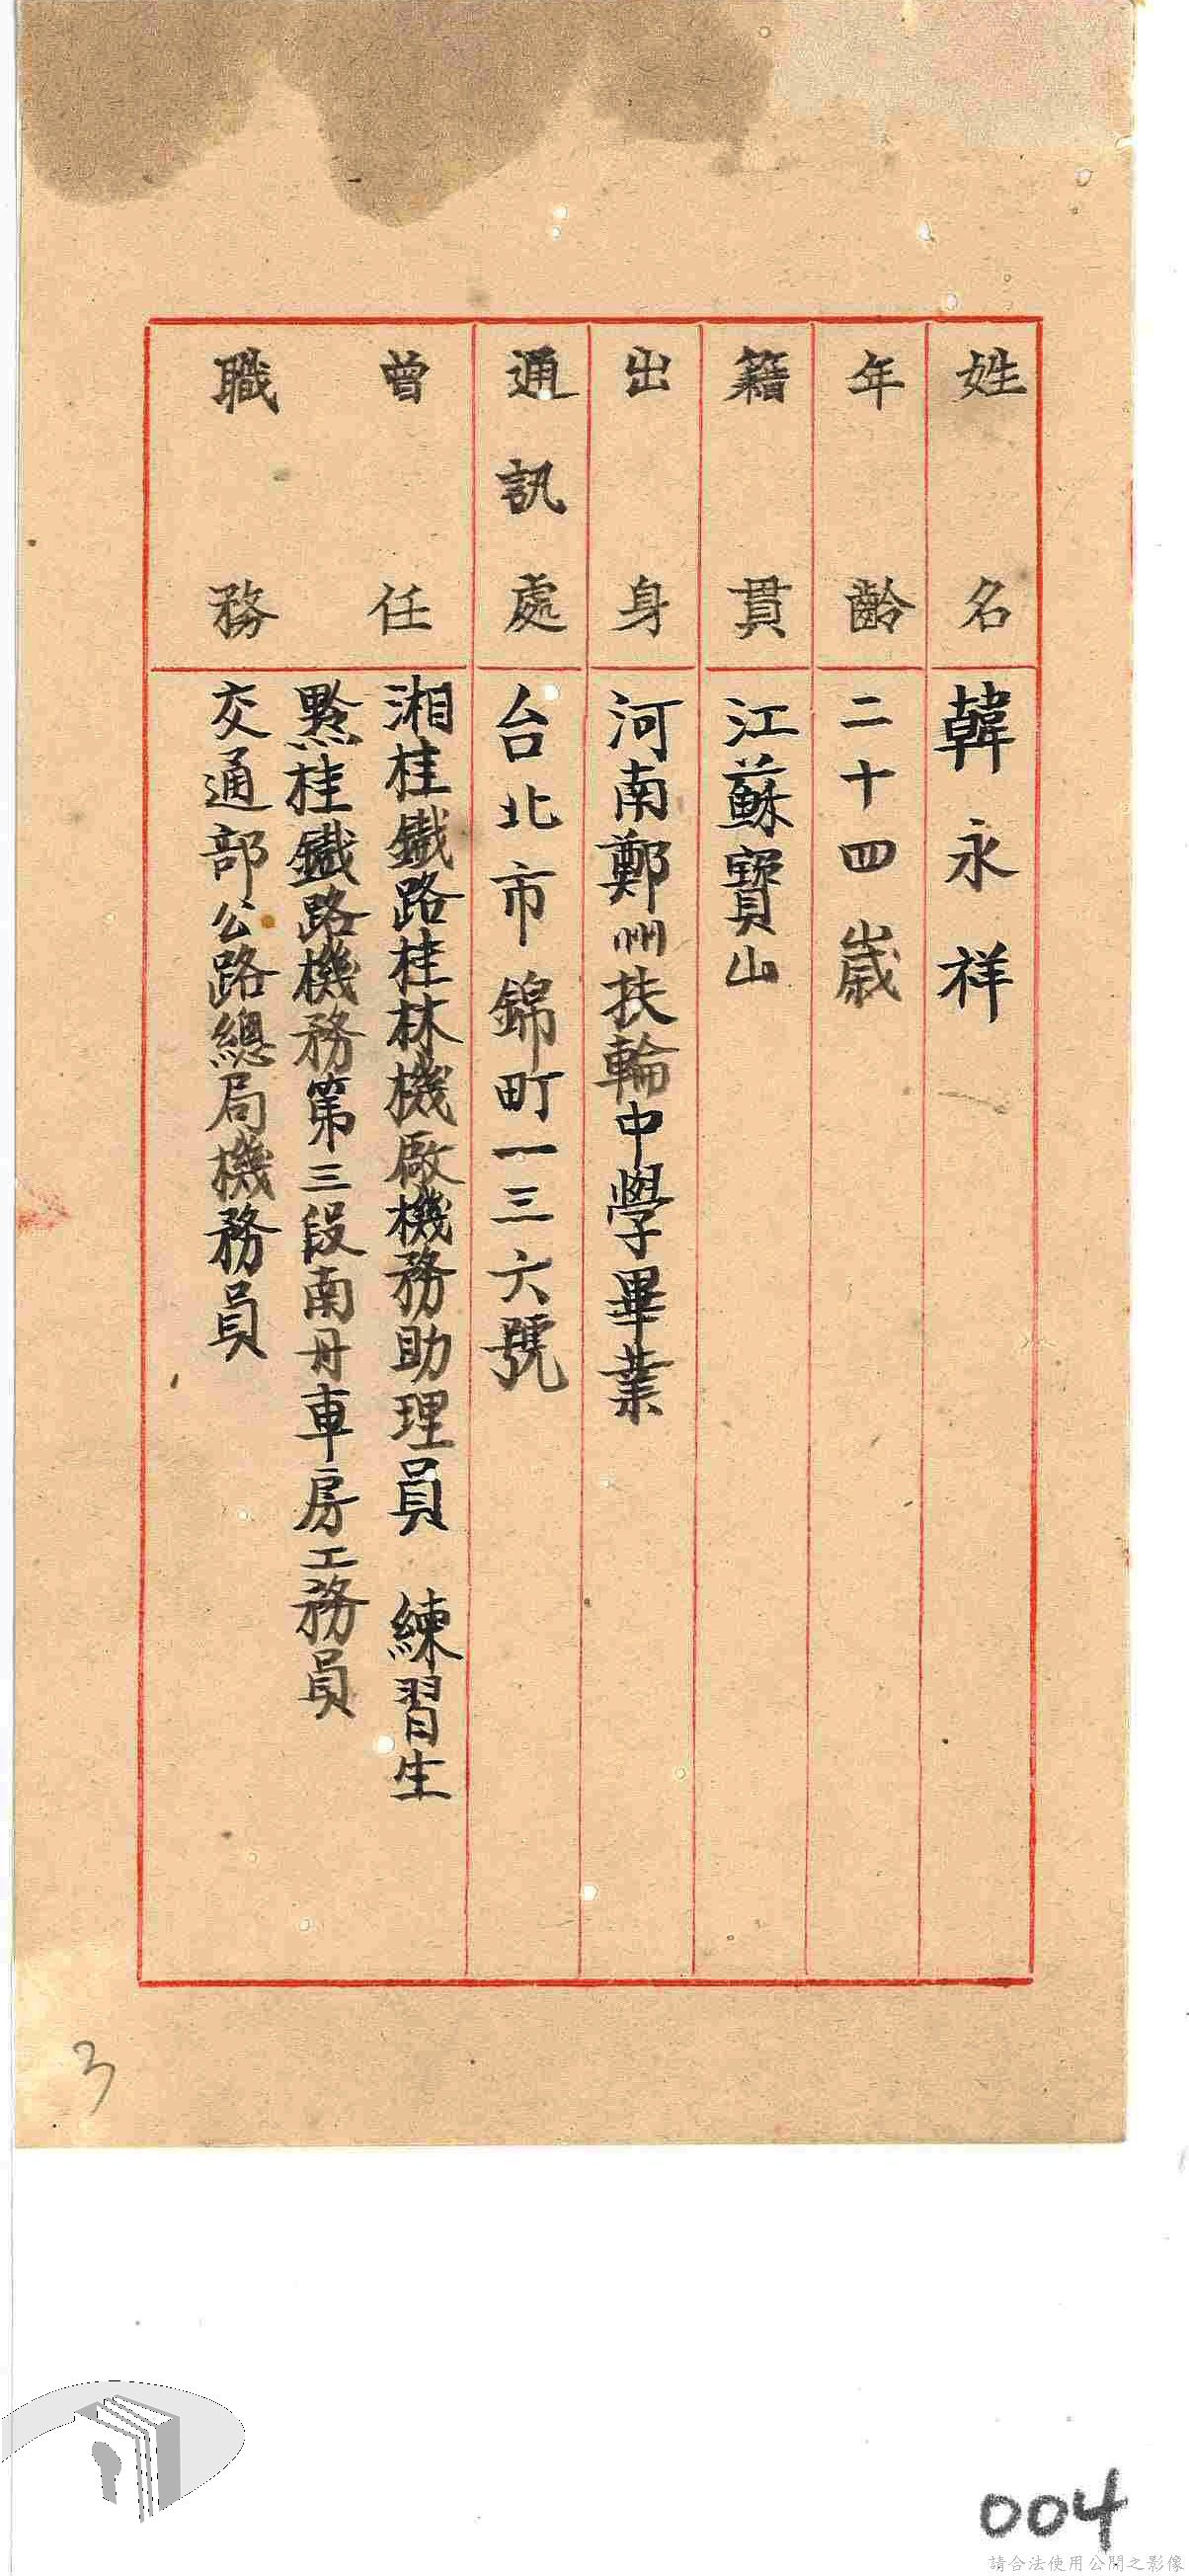 姓名 韓永祥
年齡 二十四歲
籍貫 江蘇寶山
出身 河南鄭州扶輪中學畢業
通訊處 台北市錦町一三六號
曾任職務 湘桂鐵路桂林機廠機務助理員 練習生
黔桂鐵路機務第三段南丹車房工務員
交通部公路總局機務員
3
004
請合法使用公開之影像